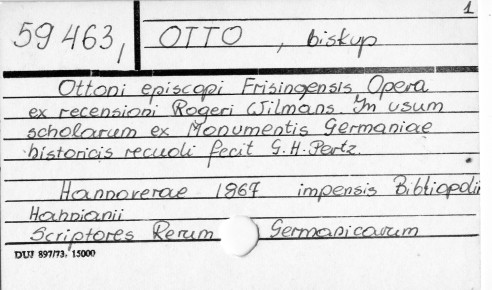 1
59 463, OTTO , biskup
Ottoni episcopi Frisingensis Opera
ex recensioni Rogeri Wilmans. In usum
scholarum ex Monumentis Germaniae
historicis recudi fecit G.H. Pertz.
Hannoverae 1867 impensis Bibliopolii
Hahniani
Scriptores Rerum Germanicarum
DUJ 897/73. 15000